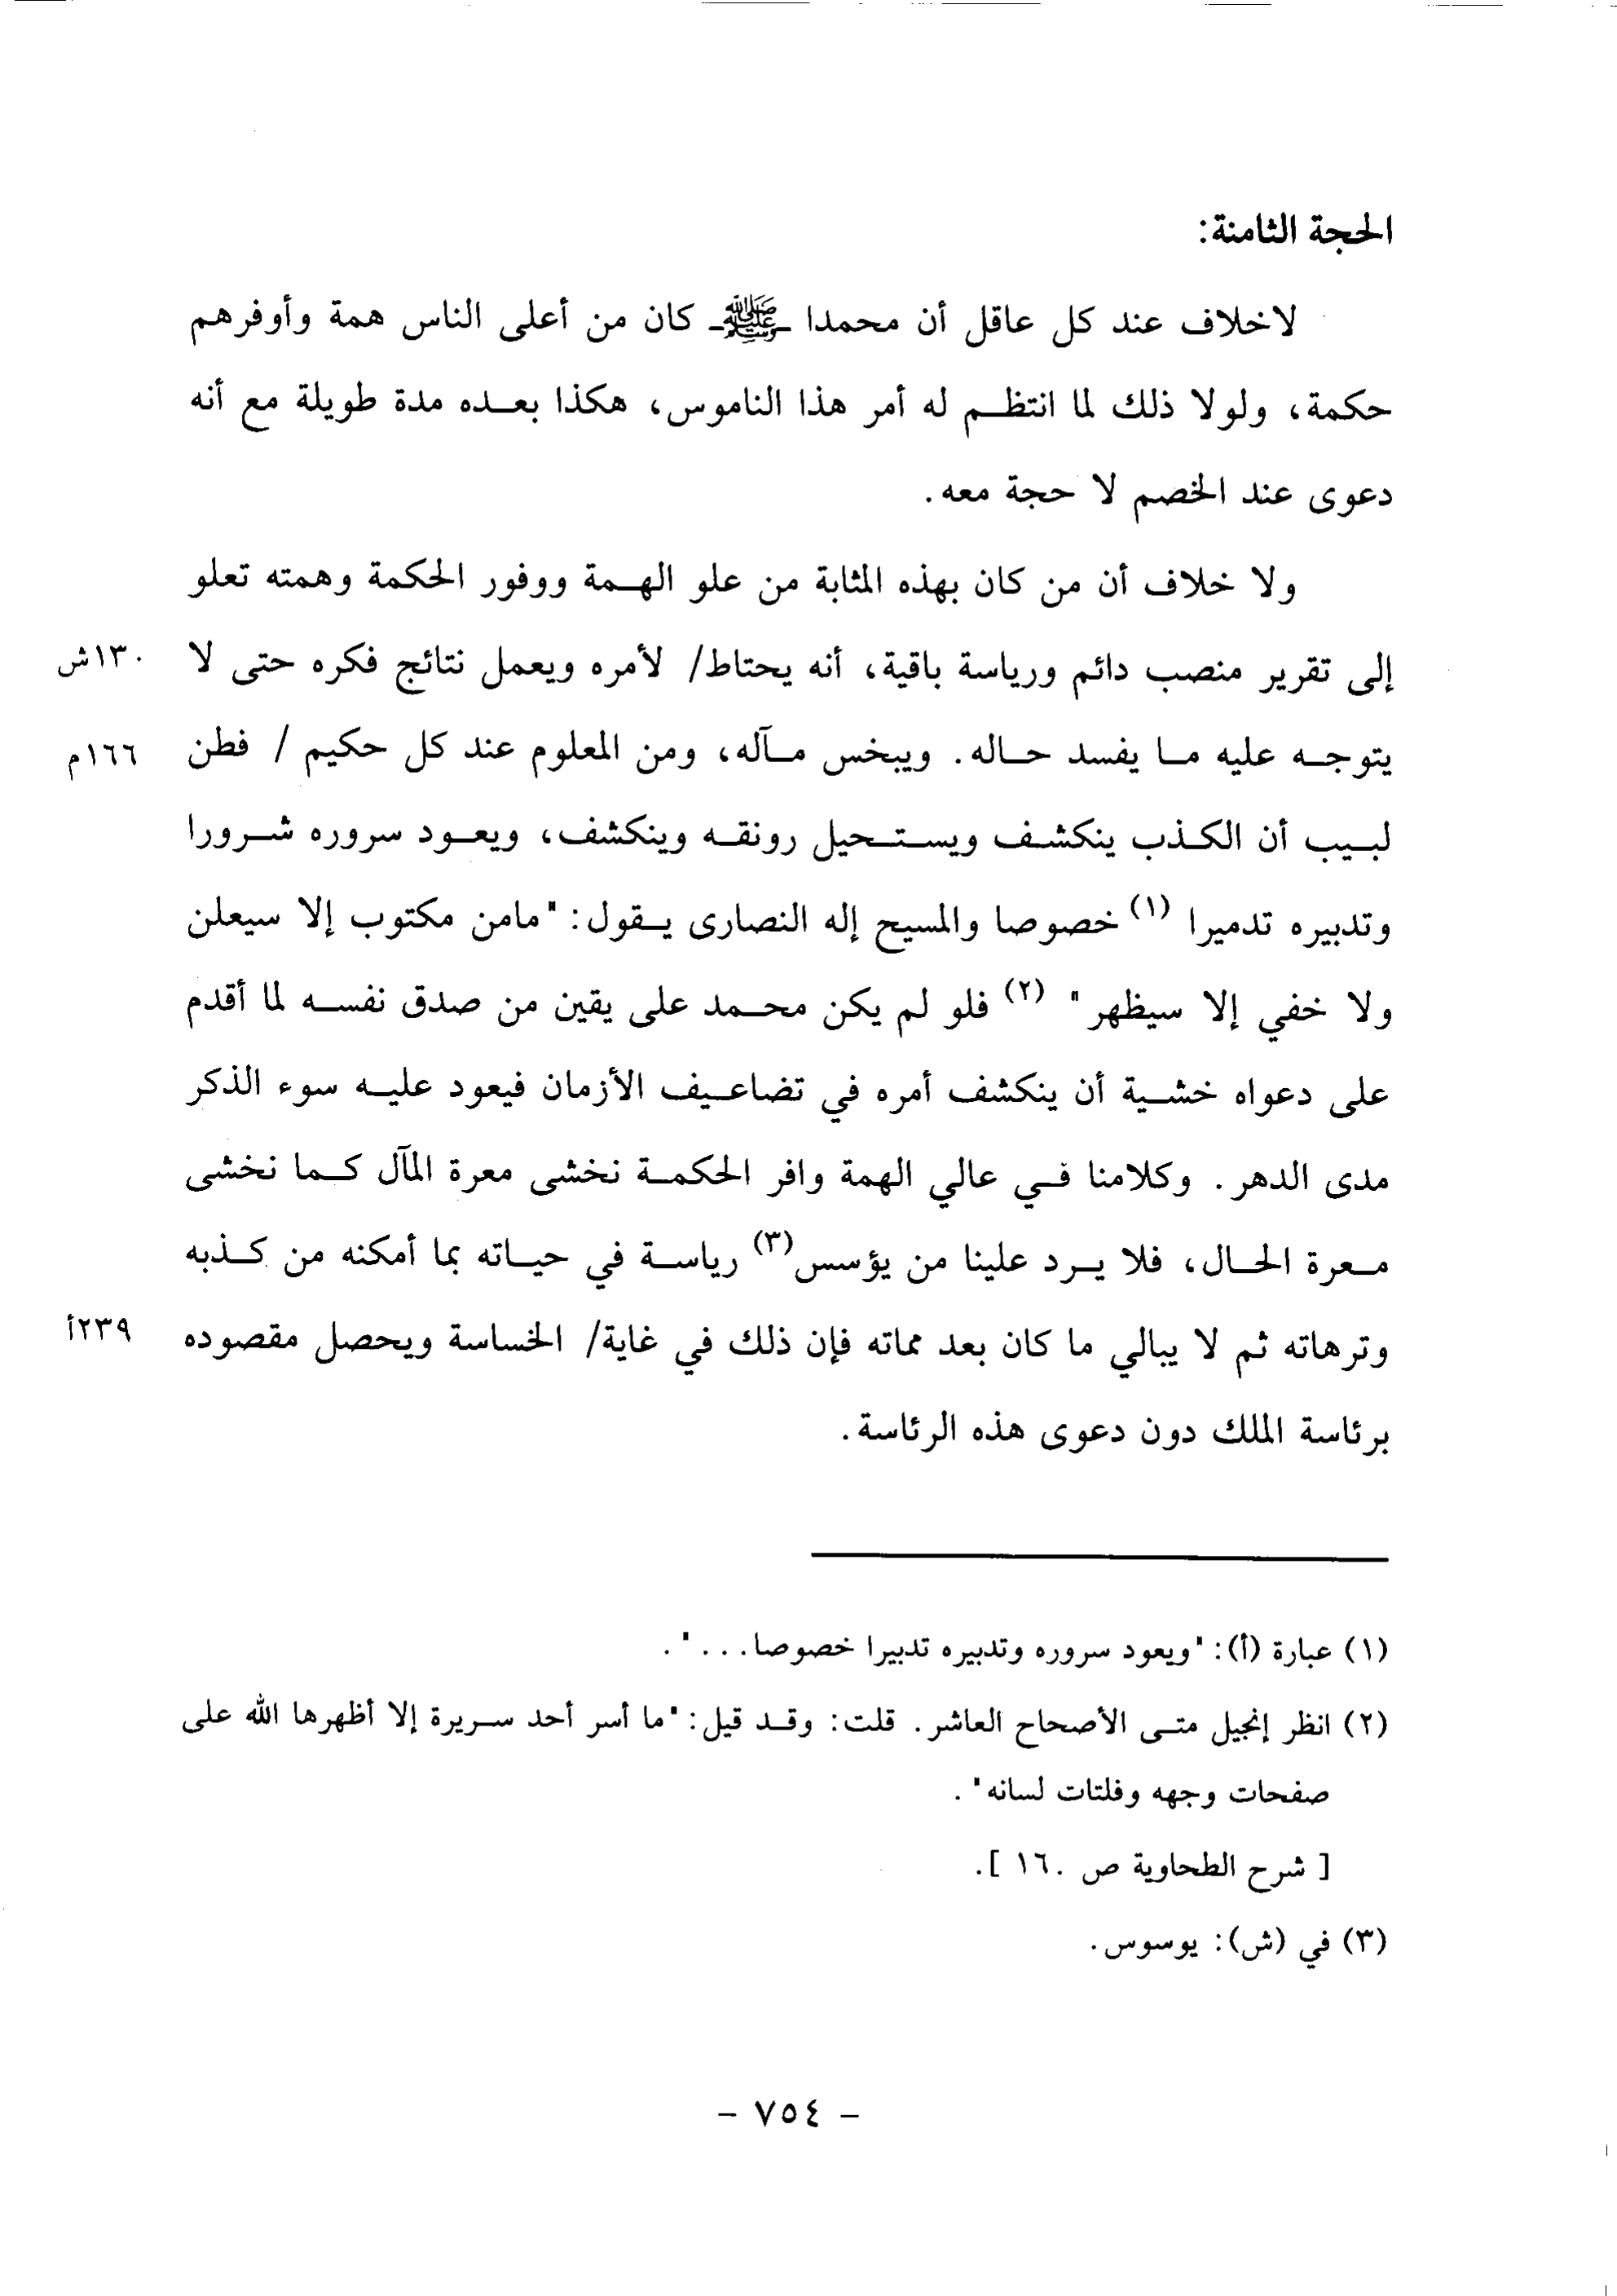 الحجة الثامنة:
لاخلاف عند كل عاقل أن محمدا -ﷺ- كان من أعلى الناس همة وأوفرهم
حكمة، ولولا ذلك لما انتظم له أمر هذا الناموس، هكذا بعده مدة طويلة مع أنه
دعوى عند الخصم لا حجة معه.
ولا خلاف أن من كان بهذه المثابة من علو الهمة ووفور الحكمة وهمته تعلو
إلى تقرير منصب دائم ورياسة باقية، أنه يحتاط/ لأمره ويعمل نتائج فكره حتى لا ١٣٠ش
يتوجه عليه ما يفسد حاله. ويبخس مآله، ومن المعلوم عند كل حكيم / فطن ١٦٦م
لبيب أن الكذب ينكشف ويستحيل رونقه وينكشف، ويعود سروره شرورا
وتدبيره تدميرا (١) خصوصا والمسيح إله النصارى يقول: "مامن مكتوب إلا سيعلن
ولا خفي إلا سيظهر" (٢) فلو لم يكن محمد على يقين من صدق نفسه لما أقدم
على دعواه خشية أن ينكشف أمره في تضاعيف الأزمان فيعود عليه سوء الذكر
مدى الدهر. وكلامنا في عالي الهمة وافر الحكمة نخشى معرة المآل كما نخشى
معرة الحال، فلا يرد علينا من يؤسس(٣) رياسة في حياته بما أمكنه من كذبه
وترهاته ثم لا يبالي ما كان بعد مماته فإن ذلك في غاية/ الخساسة ويحصل مقصوده ٢٣٩أ
برئاسة الملك دون دعوى هذه الرئاسة.
(١) عبارة (أ): "ويعود سروره وتدبيره تدبيرا خصوصا...".
(٢) انظر إنجيل متى الأصحاح العاشر. قلت: وقد قيل: "ما أسر أحد سريرة إلا أظهرها الله على
صفحات وجهه وفلتات لسانه".
[ شرح الطحاوية ص ١٦٠ ].
(٣) في (ش): يوسوس.
- ٧٥٤ -